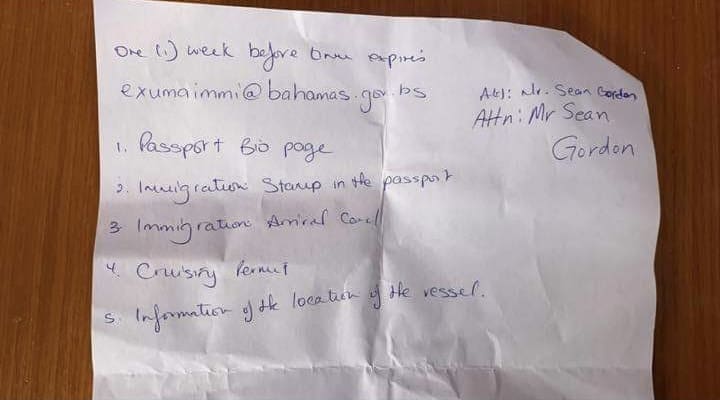 One (1.) week before time expires
exumaimmi@bahamas.gov.bs
Att: Mr. Sean Gordon
Attn: Mr Sean
Gordon
1. Passport Bio page
2. Immigration Stamp in the passport
3 Immigration Arrival Card
4. Cruising Permit
5. Information of the location of the vessel.